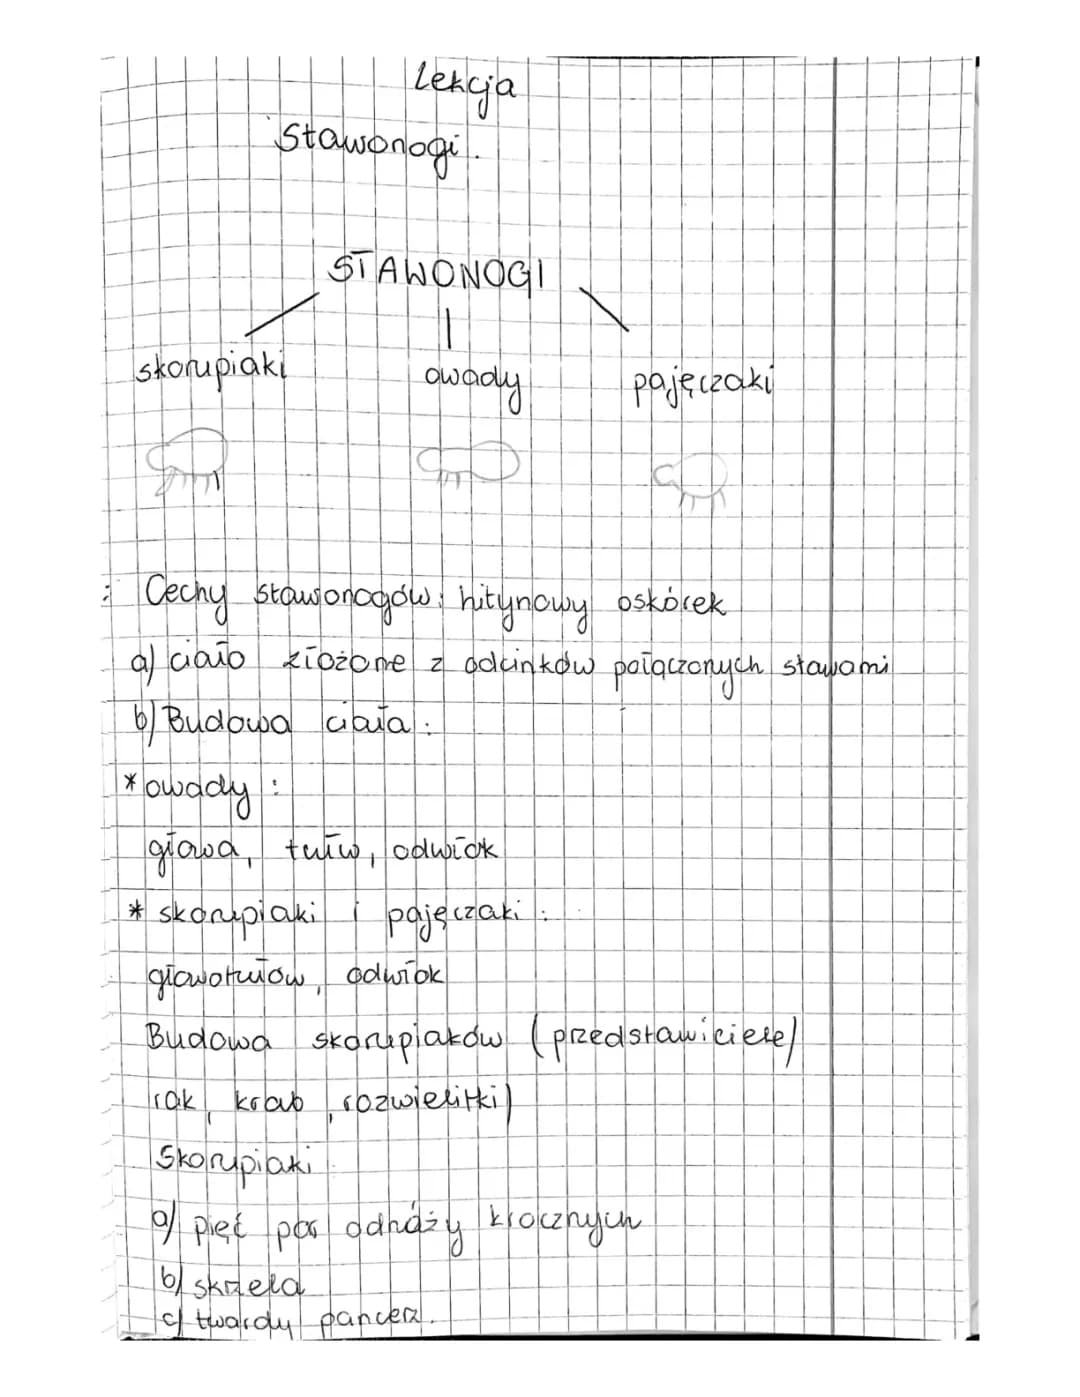 Lekcja
Stawonogi.
STAWONOGI
skorupiaki owady pajęczaki
: Cechy stawonogów: hitynowy oskórek
a) ciało złożone z odcinków połączonych stawami
b) Budowa ciała:
* owady:
głowa, tułw, odwłok
* skorupiaki i pajęczaki:
głowotułow, odwłok
Budowa skorupiaków (przedstawiciele)
rak, krab, rozwielitki)
Skorupiaki
a) pięć par odnóży krocznych
b) skrzela
c) twardy pancerz.